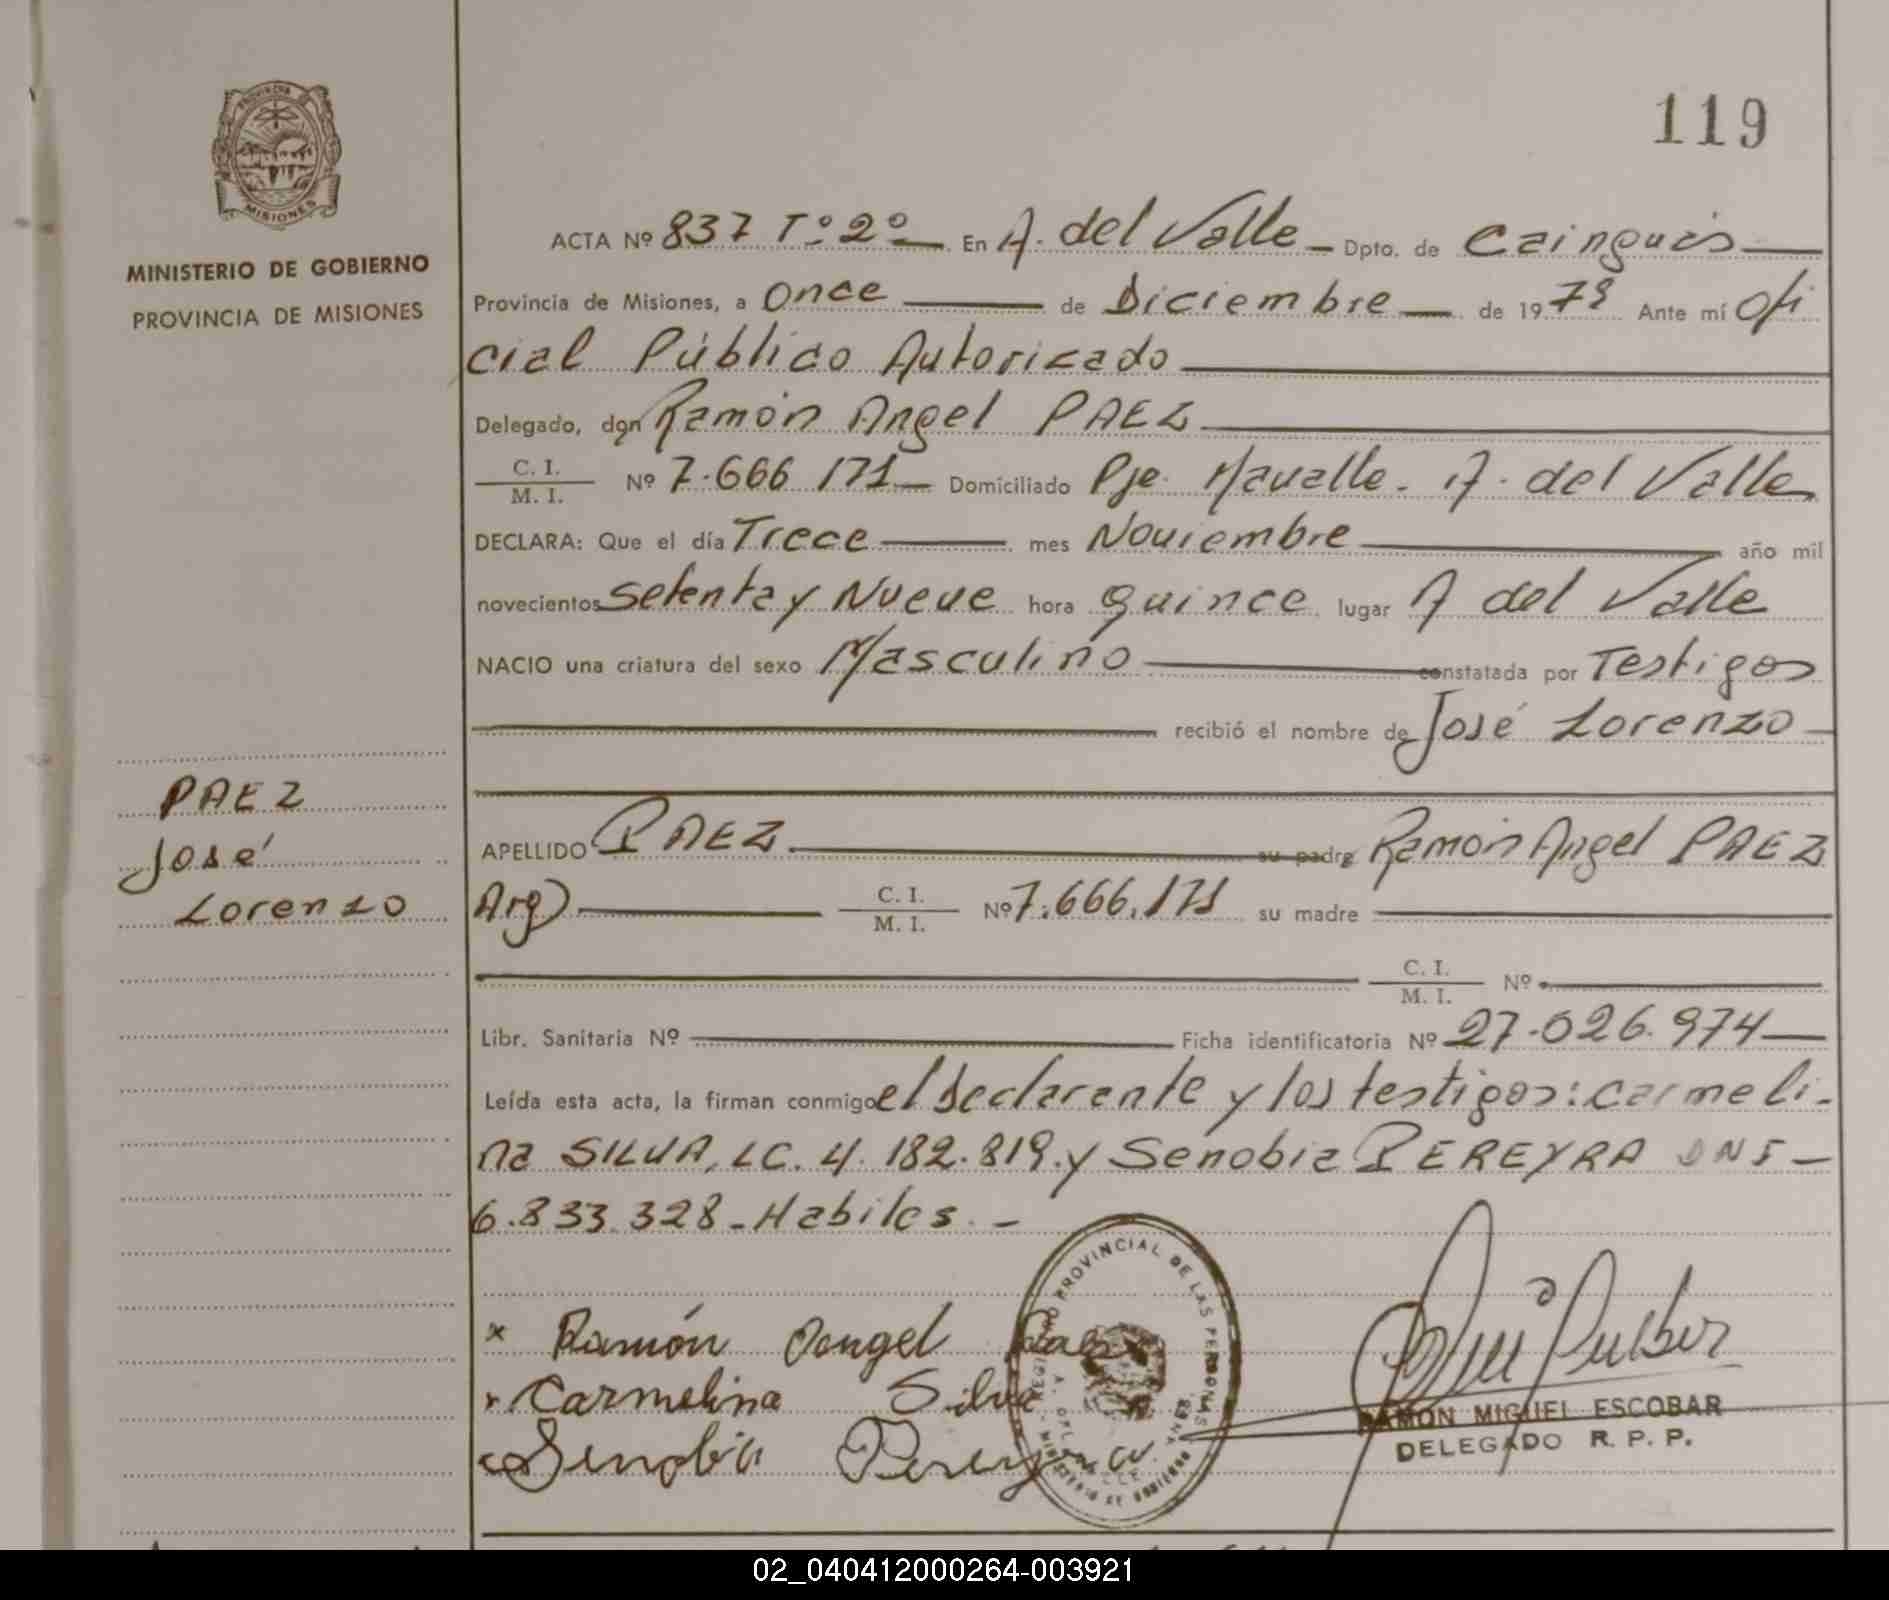 119
PROVINCIA
MISIONES
MINISTERIO DE GOBIERNO
PROVINCIA DE MISIONES
ACTA Nº 837 Tº 2º En A. del Valle Dpto. de Cainguás
Provincia de Misiones, a Once de Diciembre de 1979 Ante mí Ofi
cial Público Autorizado
Delegado, don Ramón Angel PAEZ
C. I.
M. I. Nº 7.666 171 Domiciliado Pje. Mavalle. A. del Valle
DECLARA: Que el día Trece mes Noviembre año mil
novecientos Setenta y Nueve hora quince lugar A del Valle
NACIO una criatura del sexo Masculino constatada por Testigos
recibió el nombre de José Lorenzo
PAEZ
José
Lorenzo
APELLIDO PAEZ su padre Ramón Angel PAEZ
Arg) C. I.
M. I. Nº 7.666.171 su madre
C. I.
M. I. Nº
Libr. Sanitaria Nº Ficha identificatoria Nº 27.026.974
Leída esta acta, la firman conmigo el declarante y los testigos: Carmeli-
na SILVA, LC. 4.182.819. y Senobia PEREYRA DNI
6.833.328 - Habiles. -
x Ramón Angel Paez
Carmelina Silva
Senobia Pereyra
REGISTRO PROVINCIAL DE LAS PERSONAS
MINISTERIO DE GOBIERNO
RAMON MIGUEL ESCOBAR
DELEGADO R. P. P.
02_040412000264-003921